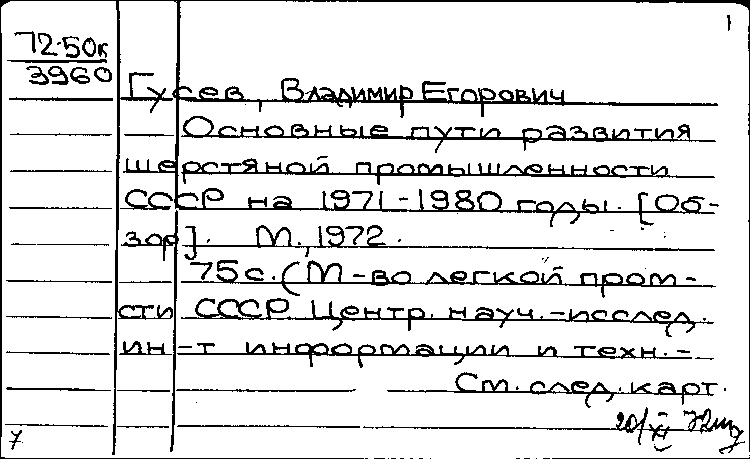 1
72-50к
3960
Гусев, Владимир Егорович
Основные пути развития
шерстяной промышленности
СССР на 1971-1980 годы. [Об-
зор]. М., 1972.
75с. (М-во легкой пром-
сти СССР. Центр. науч.-исслед.
ин-т информации и техн.-
См. след. карт.
20/XI 72
7